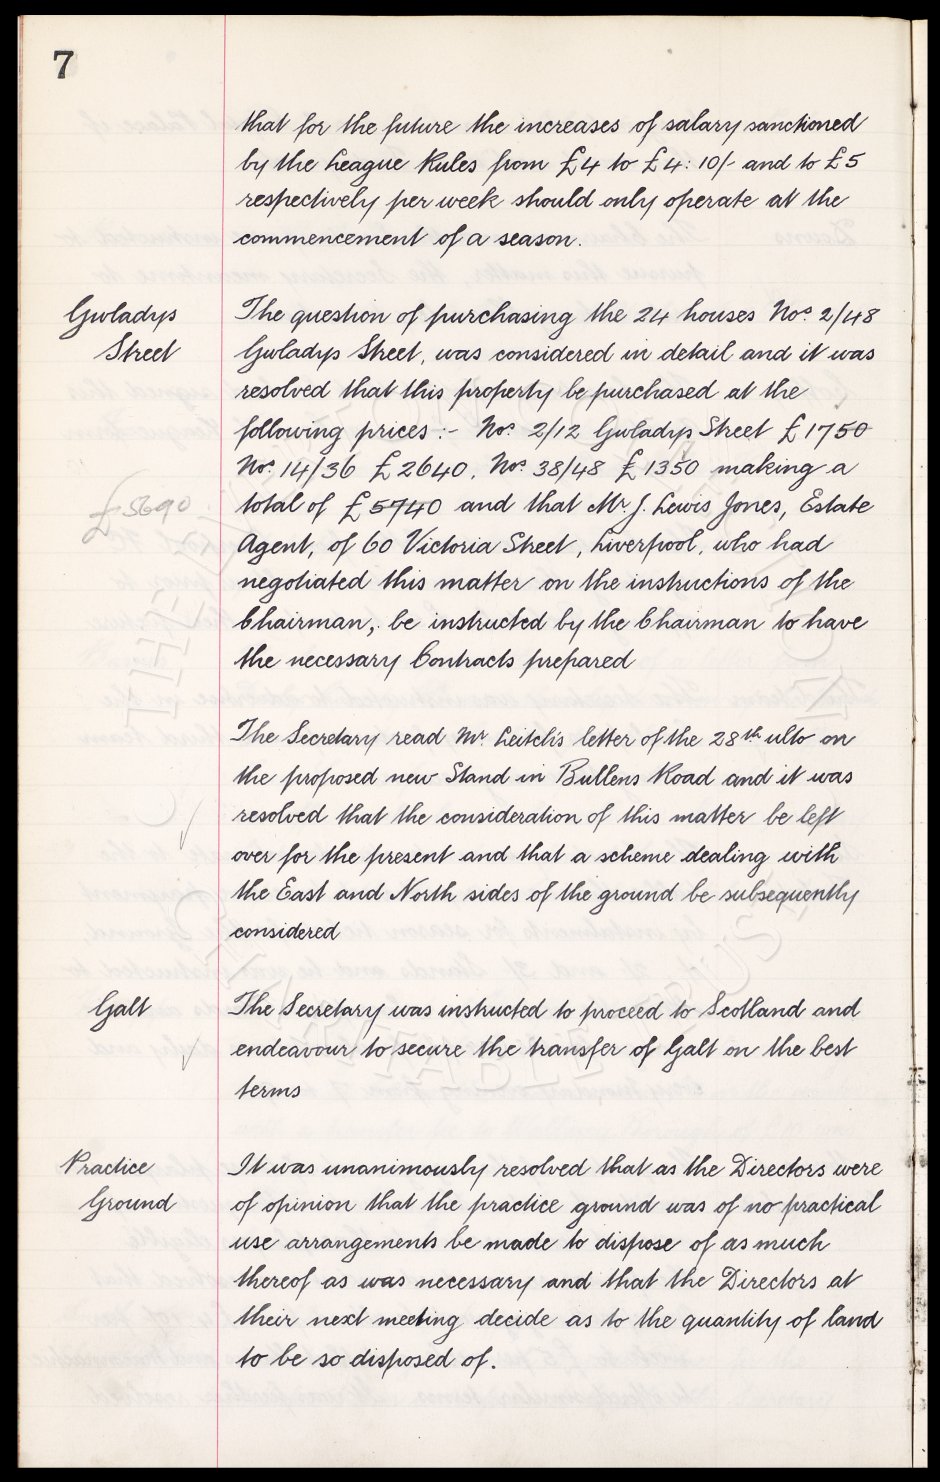 7
that for the future the increases of salary sanctioned
by the League Rules from £4 to £4:10/- and to £5
respectively per week should only operate at the
commencement of a season.
Gwladys
Street
The question of purchasing the 24 houses Nos. 2/48
Gwladys Street, was considered in detail and it was
resolved that this property be purchased at the
following prices :- Nos. 2/12 Gwladys Street £1750
Nos. 14/36 £2640. Nos. 38/48 £1350 making a
£5690
total of £5740 and that Mr. J. Lewis Jones, Estate
Agent, of 60 Victoria Street, Liverpool, who had
negotiated this matter on the instructions of the
Chairman, be instructed by the Chairman to have
the necessary Contracts prepared
The Secretary read Mr. Leitch's letter of the 28th ulto on
the proposed new Stand in Bullens Road and it was
resolved that the consideration of this matter be left
over for the present and that a scheme dealing with
the East and North sides of the ground be subsequently
considered
Galt
The Secretary was instructed to proceed to Scotland and
endeavour to secure the transfer of Galt on the best
terms
Practice
Ground
It was unanimously resolved that as the Directors were
of opinion that the practice ground was of no practical
use arrangements be made to dispose of as much
thereof as was necessary and that the Directors at
their next meeting decide as to the quantity of land
to be so disposed of.